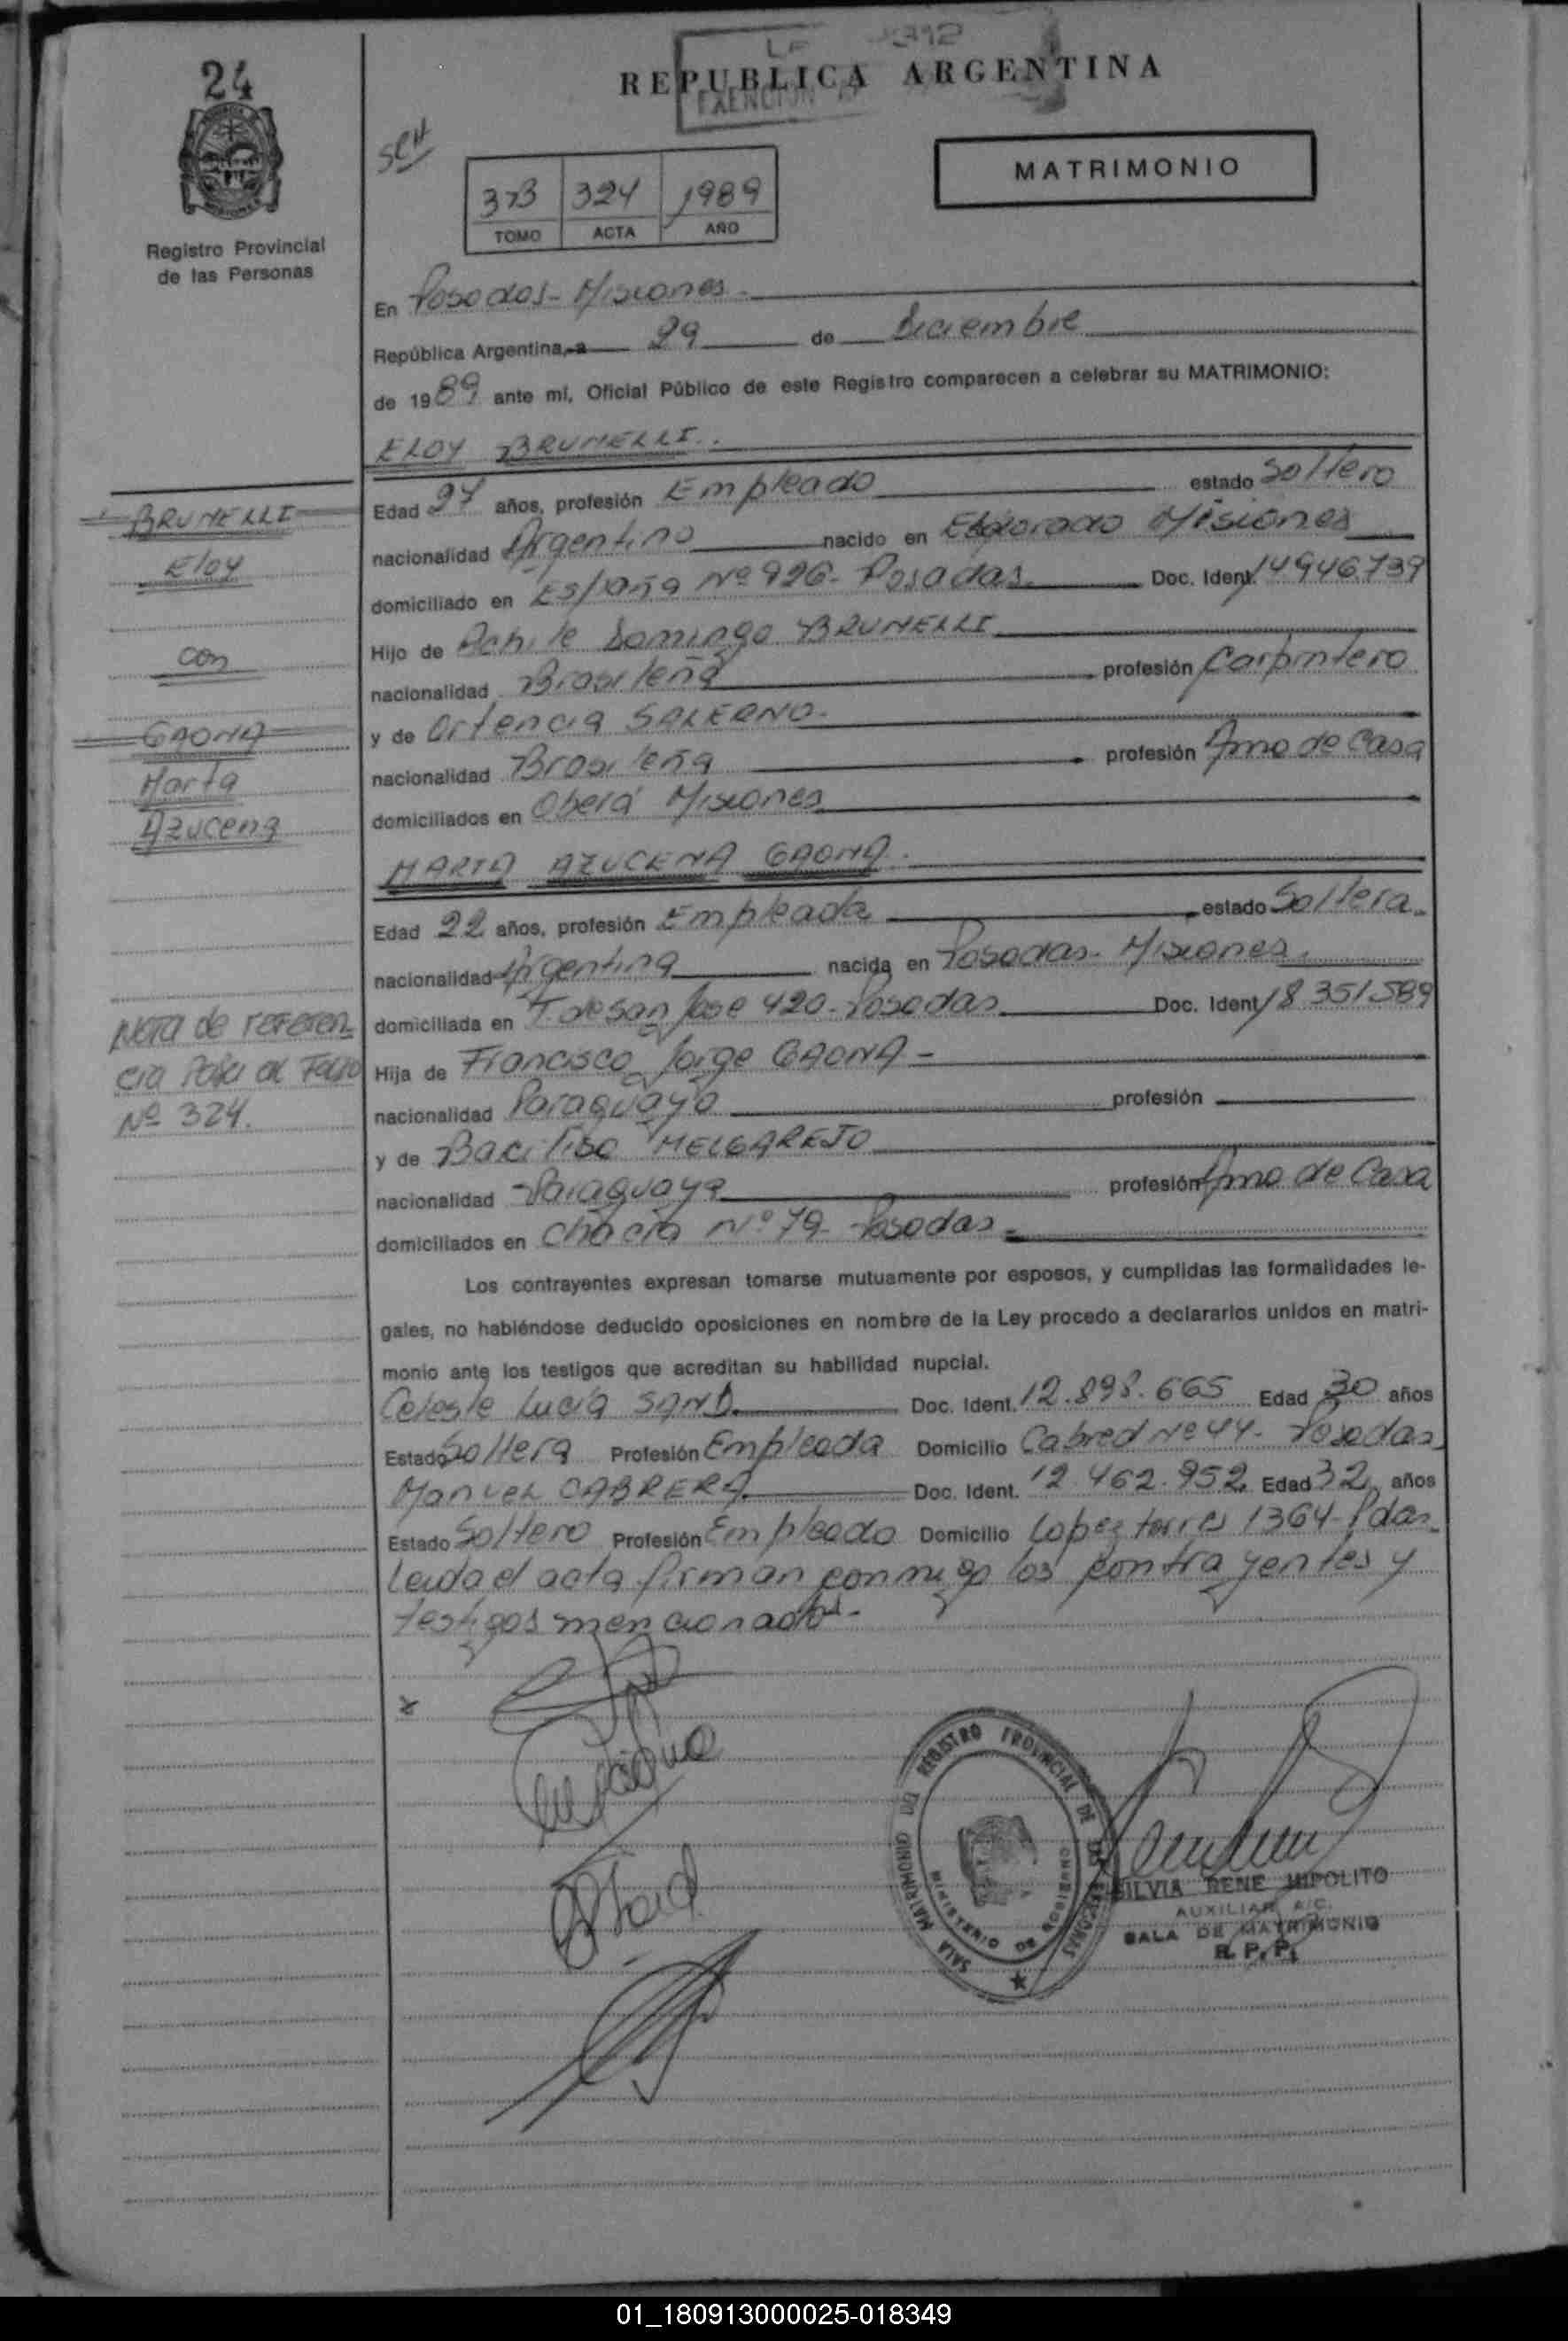 24
REPUBLICA ARGENTINA
SCH
MATRIMONIO
373 324 1989
TOMO ACTA AÑO
Registro Provincial
de las Personas
En Posadas - Misiones -
República Argentina, a 29 de Diciembre
de 1989 ante mi, Oficial Público de este Registro comparecen a celebrar su MATRIMONIO:
ELOY BRUNELLI.
Edad 27 años, profesión Empleado estado Soltero
nacionalidad Argentino nacido en Eldorado Misiones
domiciliado en España Nº 926 - Posadas Doc. Ident. 14946739
Hijo de Achile Domingo BRUNELLI
nacionalidad Brasileña profesión Carpintero
y de Ortencia SALERNO -
nacionalidad Brasileña profesión Ama de Casa
domiciliados en Oberá Misiones
MARTA AZUCENA GAONA.
Edad 22 años, profesión Empleada estado Soltera
nacionalidad Argentina nacida en Posadas - Misiones
domiciliada en T. de San Jose 420 - Posadas Doc. Ident. 18351589
Hija de Francisco Jorge GAONA -
nacionalidad Paraguayo profesión
y de Bacilisa MELGAREJO
nacionalidad Paraguaya profesión Ama de Casa
domiciliados en Chacra Nº 79 - Posadas -
Los contrayentes expresan tomarse mutuamente por esposos, y cumplidas las formalidades le-
gales, no habiéndose deducido oposiciones en nombre de la Ley procedo a declararlos unidos en matri-
monio ante los testigos que acreditan su habilidad nupcial.
Celeste Lucía SAND Doc. Ident. 12.898.665 Edad 30 años
Estado Soltera Profesión Empleada Domicilio Cabred Nº 44 - Posadas
Manuel CABRERA Doc. Ident. 12.462.952 Edad 32 años
Estado Soltero Profesión Empleado Domicilio Lopez torres 1364 - Pdas
Leida el acta firman conmigo los contrayentes y
testigos mencionados -
BRUNELLI
Eloy
con
GAONA
Marta
Azucena
Nota de referen
cia Pasa al Folio
Nº 324.
REGISTRO PROVINCIAL DE LAS PERSONAS
SALA MATRIMONIO
MINISTERIO DE GOBIERNO
SILVIA RENE HIPOLITO
AUXILIAR A/C.
SALA DE MATRIMONIO
R. P. P.
01_180913000025-018349